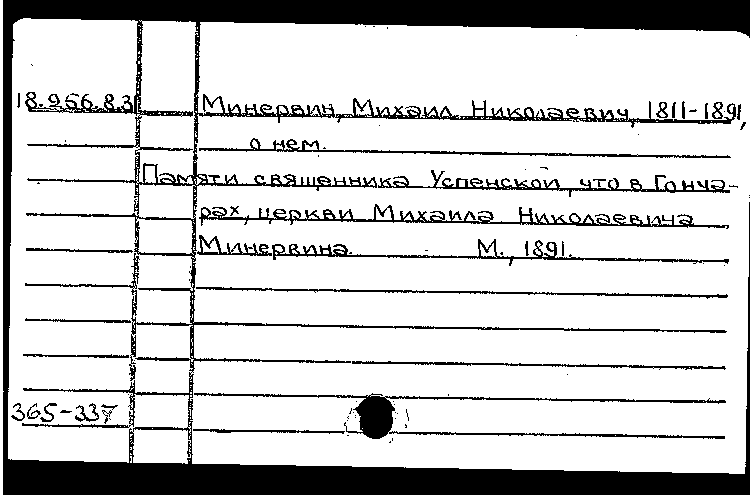 18.956.8.31 Минервин, Михаил Николаевич, 1811-1891,
о нем.
Памяти священника Успенской, что в Гонча-
рах, церкви Михаила Николаевича
Минервина. М., 1891.
365-337